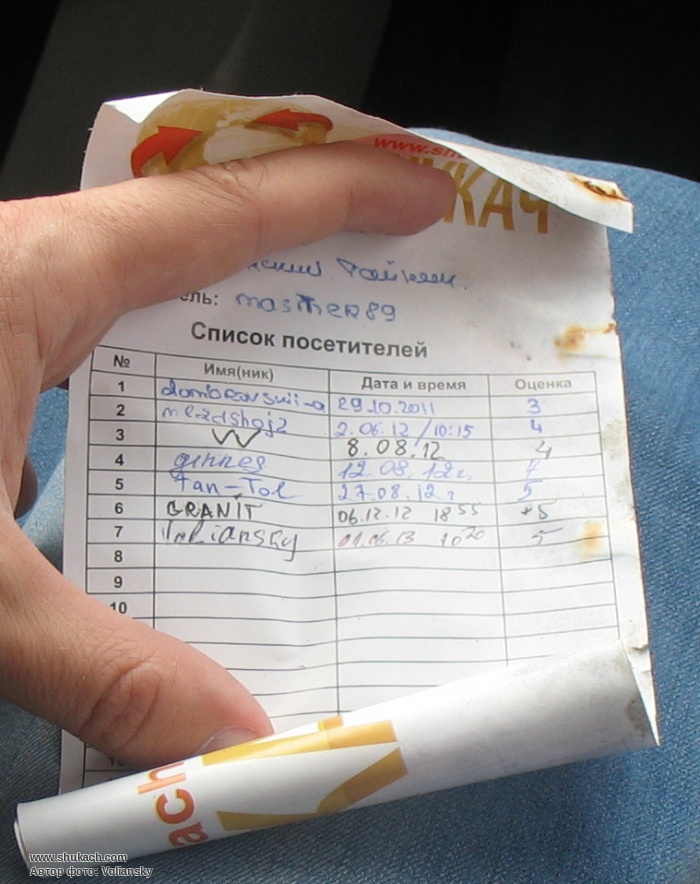 www.shu
УКАЧ
ель: masther89
Список посетителей
№ Имя(ник) Дата и время Оценка
1 dombrovskii-a 29.10.2011 3
2 2.06.12 /10:15 4
3 W 8.08.12 4
4 ginnes 12.08.12г.
5 Tan-Tol 27.08.12г 5
6 GRANIT 06.12.12 18 55 +5
7 Voliansky 01.06.13 10 20 5
8
9
10
ach
www.shukach.com
Автор фото: Voliansky